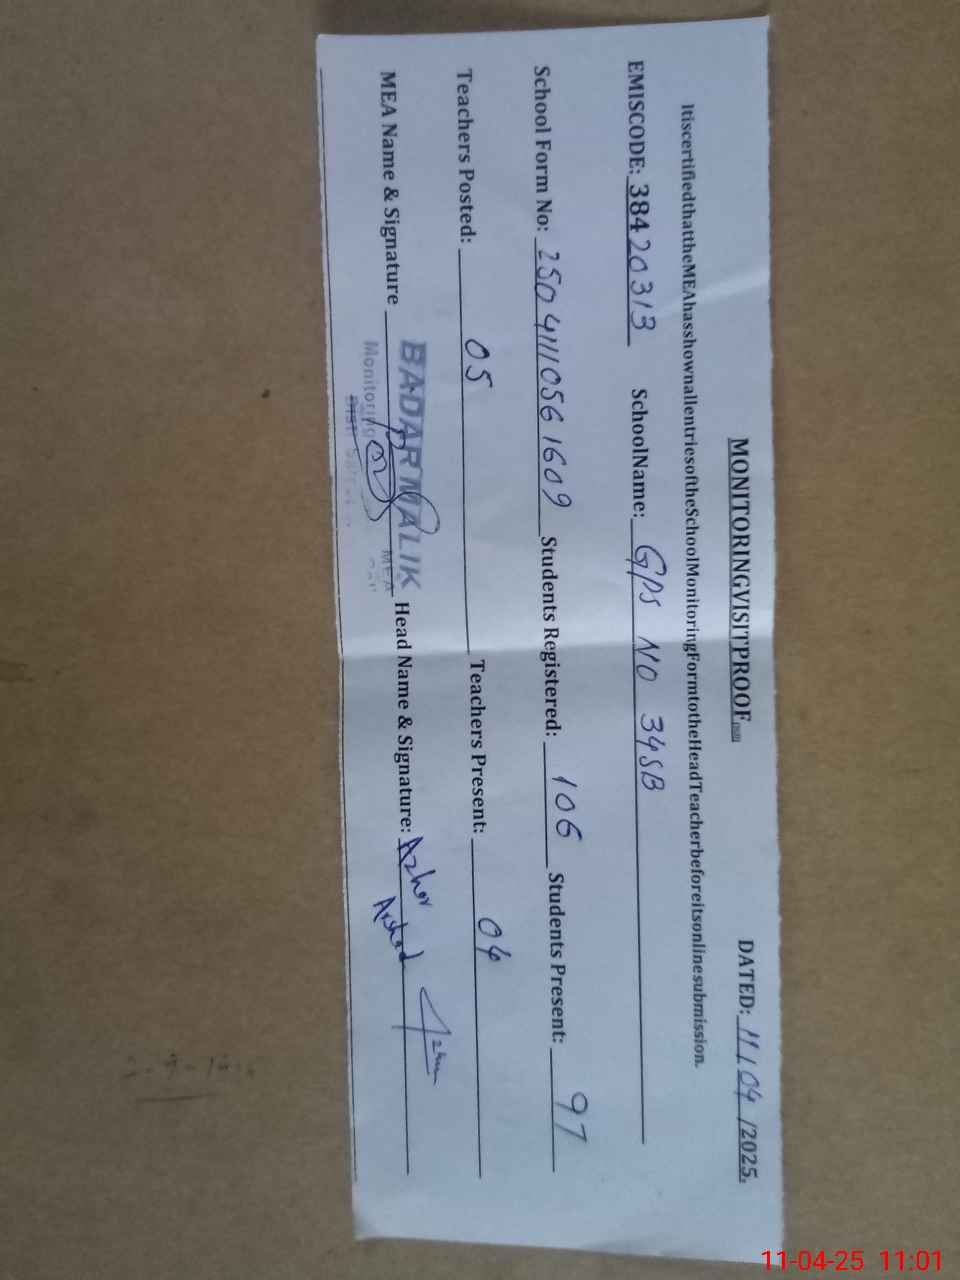 MONITORINGVISITPROOF
DATED: 11/04/2025.
ItiscertifiedthattheMEAhasshownallentriesoftheSchoolMonitoringFormtotheHeadTeacherbeforeitsonlinesubmission.
EMISCODE: 38420313 SchoolName: GPS NO 34SB
School Form No: 25041110561609 Students Registered: 106 Students Present: 97
Teachers Posted: 05 Teachers Present: 04
MEA Name & Signature BADAR MALIK Head Name & Signature: Azhar
Monitoring MEA Arshad
11-04-25 11:01